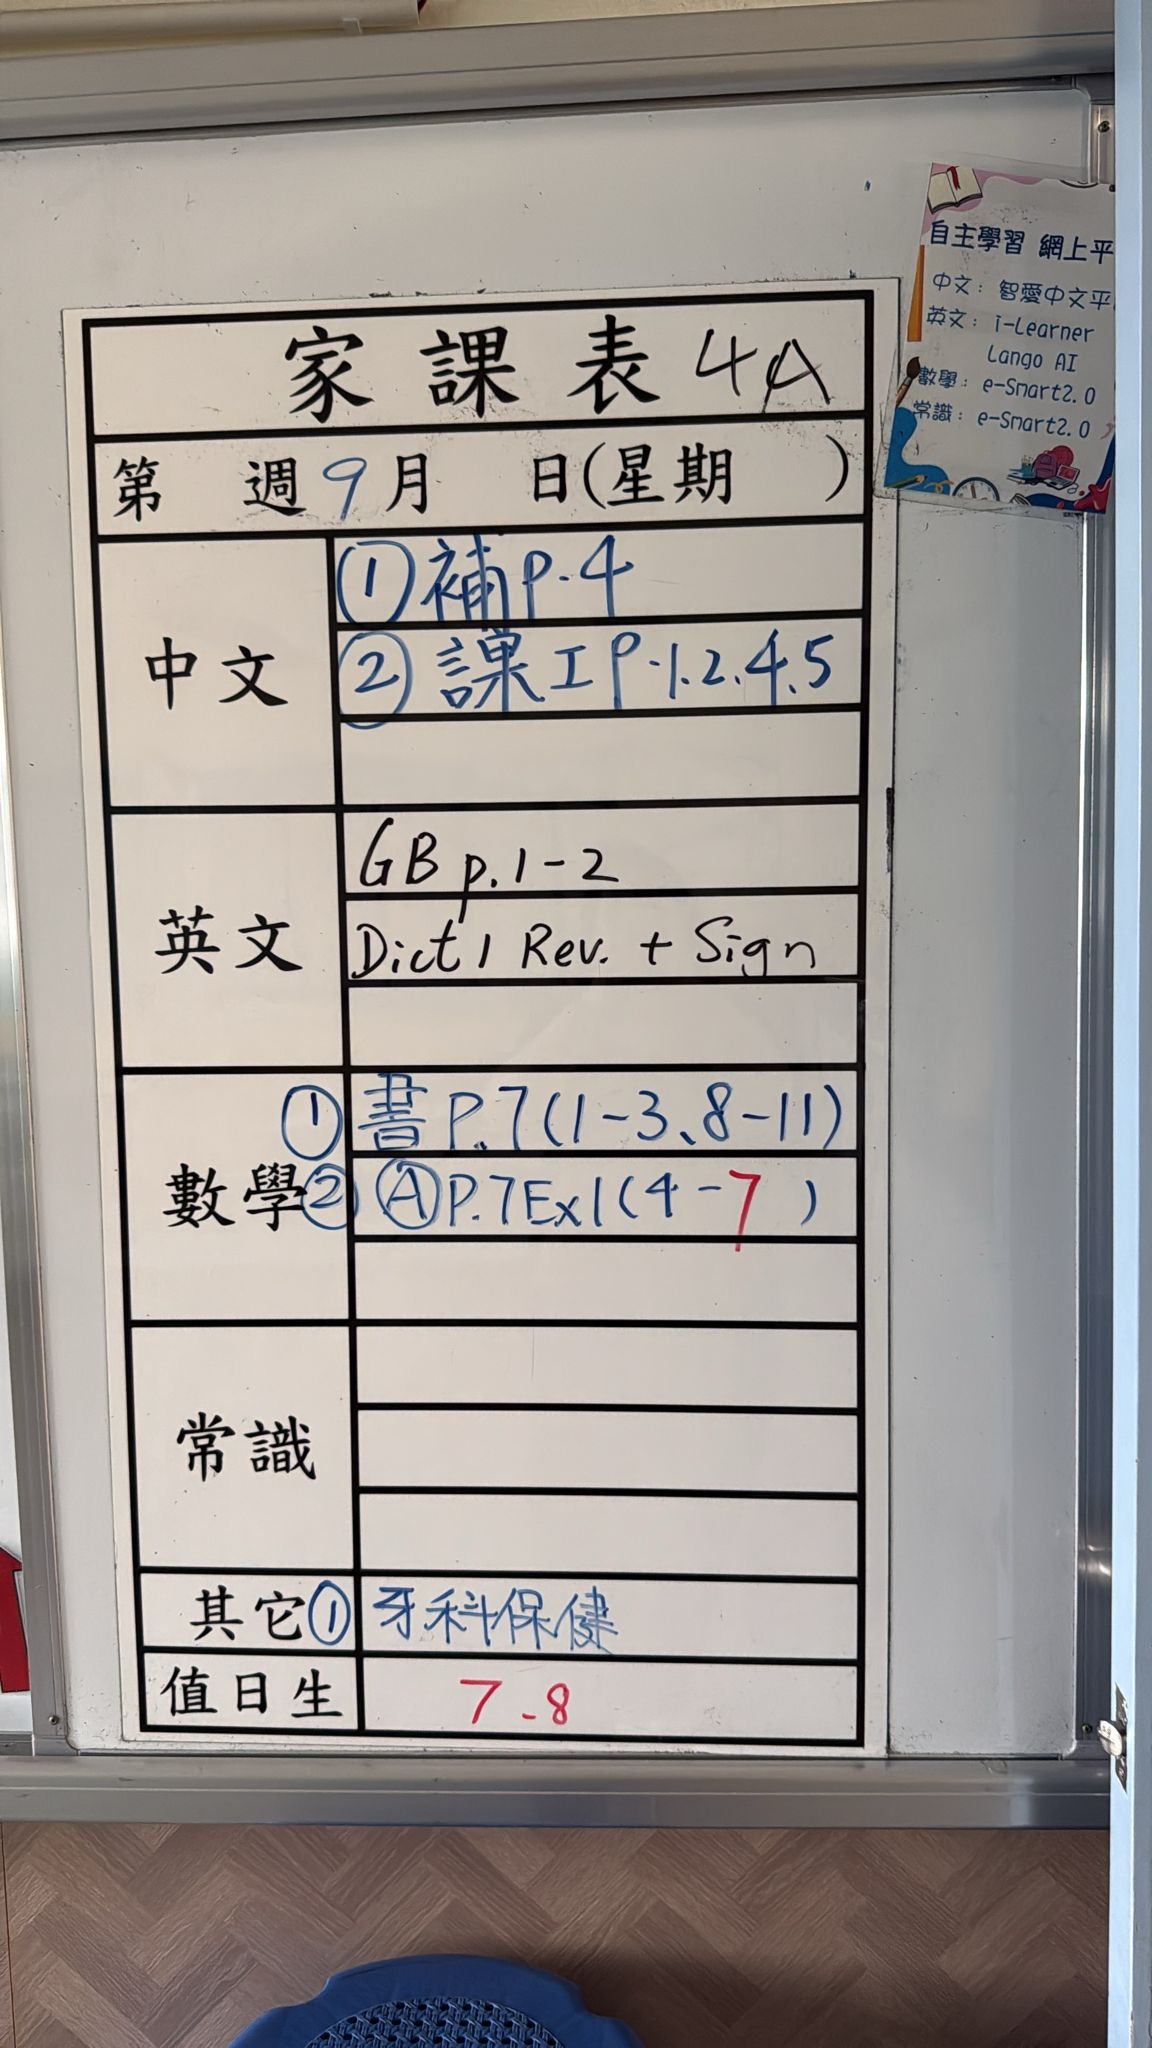 家課表 4A
第 週 9月 日(星期 )
中文
① 補 P.4
② 課工 P.1.2.4.5
英文
GB p.1-2
Dict 1 Rev. + Sign
數學
① 書 P.7(1-3、8-11)
② Ⓐ P.7 Ex1(4-7 )
常識
其它 ① 牙科保健
值日生 7-8
自主學習 網上平
中文：智愛中文平
英文：i-Learner
Lango AI
數學：e-Smart2.0
常識：e-Smart2.0